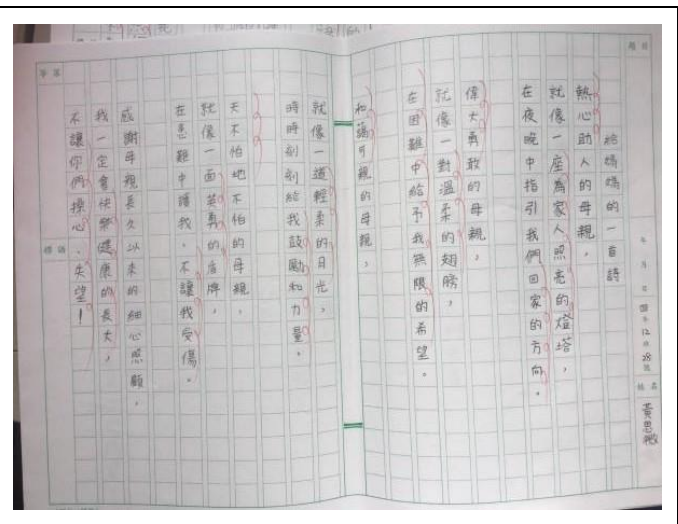 題目
年 月 日
四年12班28號
姓名
黃思
給媽媽的一首詩
熱心助人的母親，
就像一座為家人照亮的燈塔，
在夜晚中指引我們回家的方向。
偉大勇敢的母親，
就像一對溫柔的翅膀，
在困難中給予我無限的希望。
和藹可親的母親，
就像一道輕柔的月光，
時時刻刻給我鼓勵和力量。
天不怕地不怕的母親，
就像一面英勇的盾牌，
在患難中護我，不讓我受傷。
感謝母親長久以來的細心照顧，
我一定會快樂健康的長大，
不讓你們操心、失望！